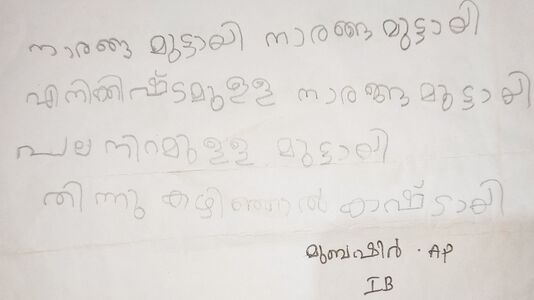 നാരങ്ങ മുട്ടായി നാരങ്ങ മുട്ടായി
എനിക്കിഷ്ടമുള്ള നാരങ്ങ മുട്ടായി
പല നിറമുള്ള മുട്ടായി
തിന്നു കഴിഞ്ഞാൽ കാഷ്ടായി
മുബഷിർ . AP
I B